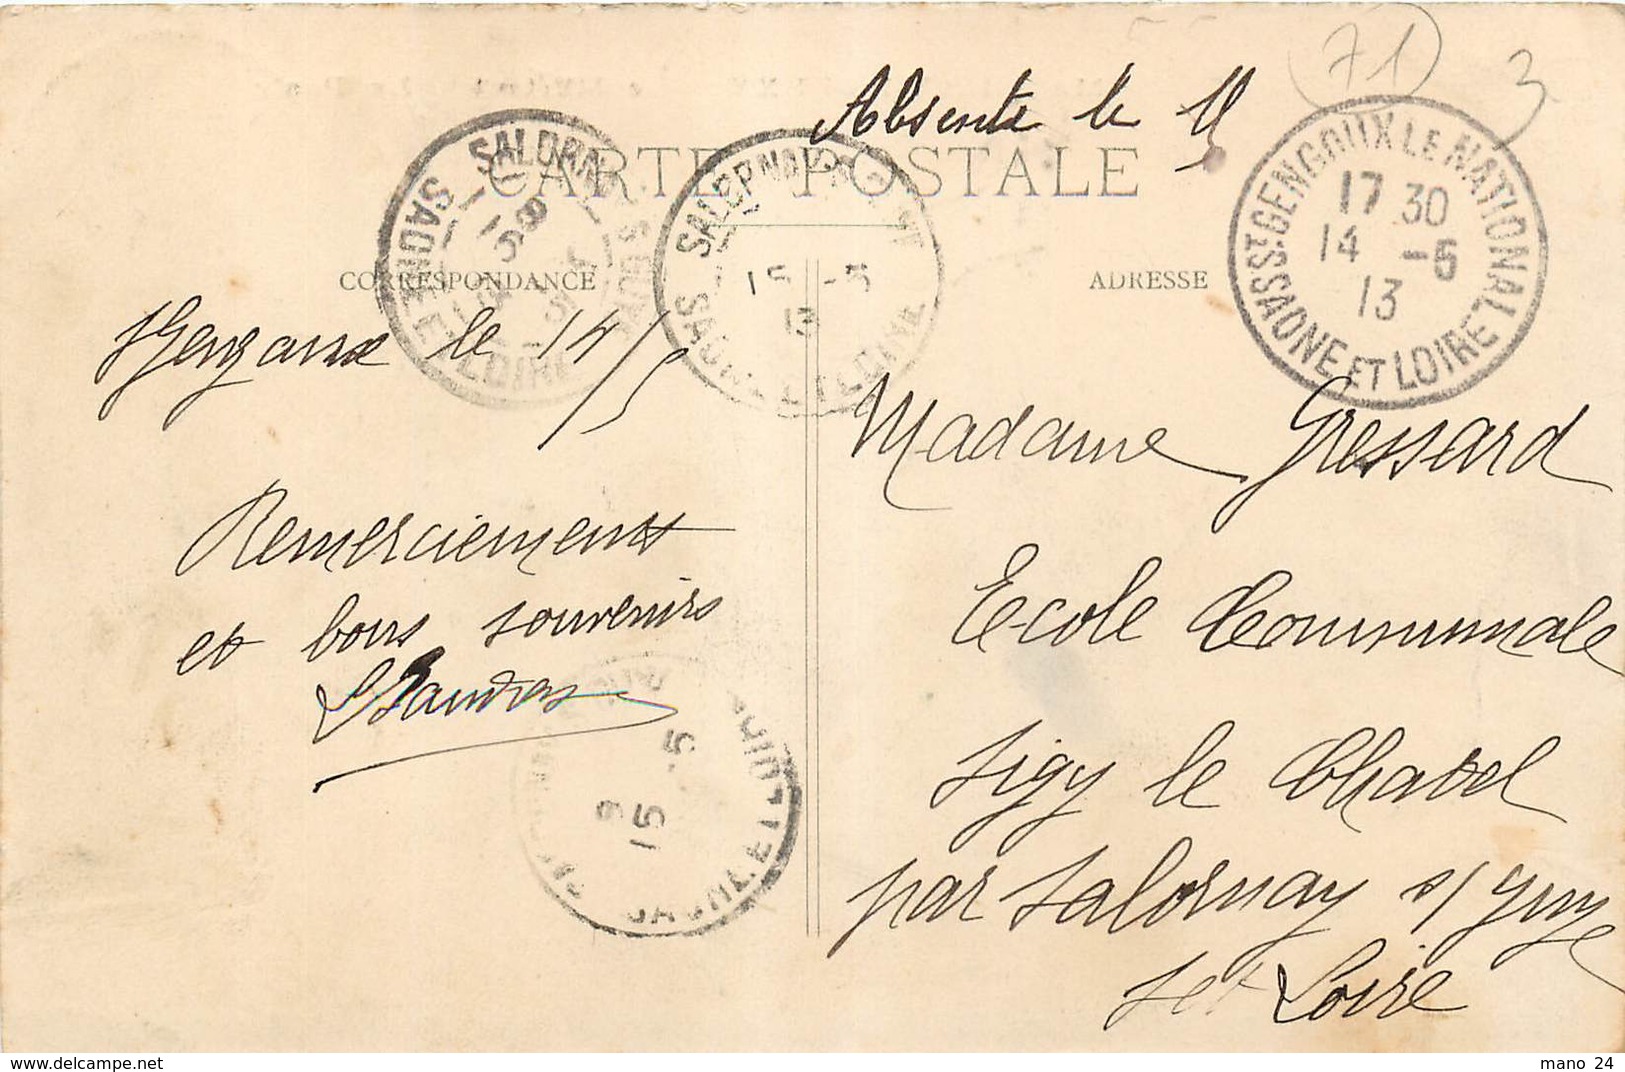 (71) 3
Absente le 15
CARTE POSTALE
CORRESPONDANCE
ADRESSE
ST GENGOUX LE NATIONAL
17 30
14 -5
13
SAONE ET LOIRE
SALORN
SAONE
LOIRE
SALORNAY S
15 -5
13
SAONE ET LOIRE
le 14/5
Remerciements
et bons souvenirs
Madame Gressard
Ecole Communale
Sigy le Chatel
par Salornay s/ Guye
S et Loire
15 -5
SAONE ET LOIRE
www.delcampe.net
mano 24